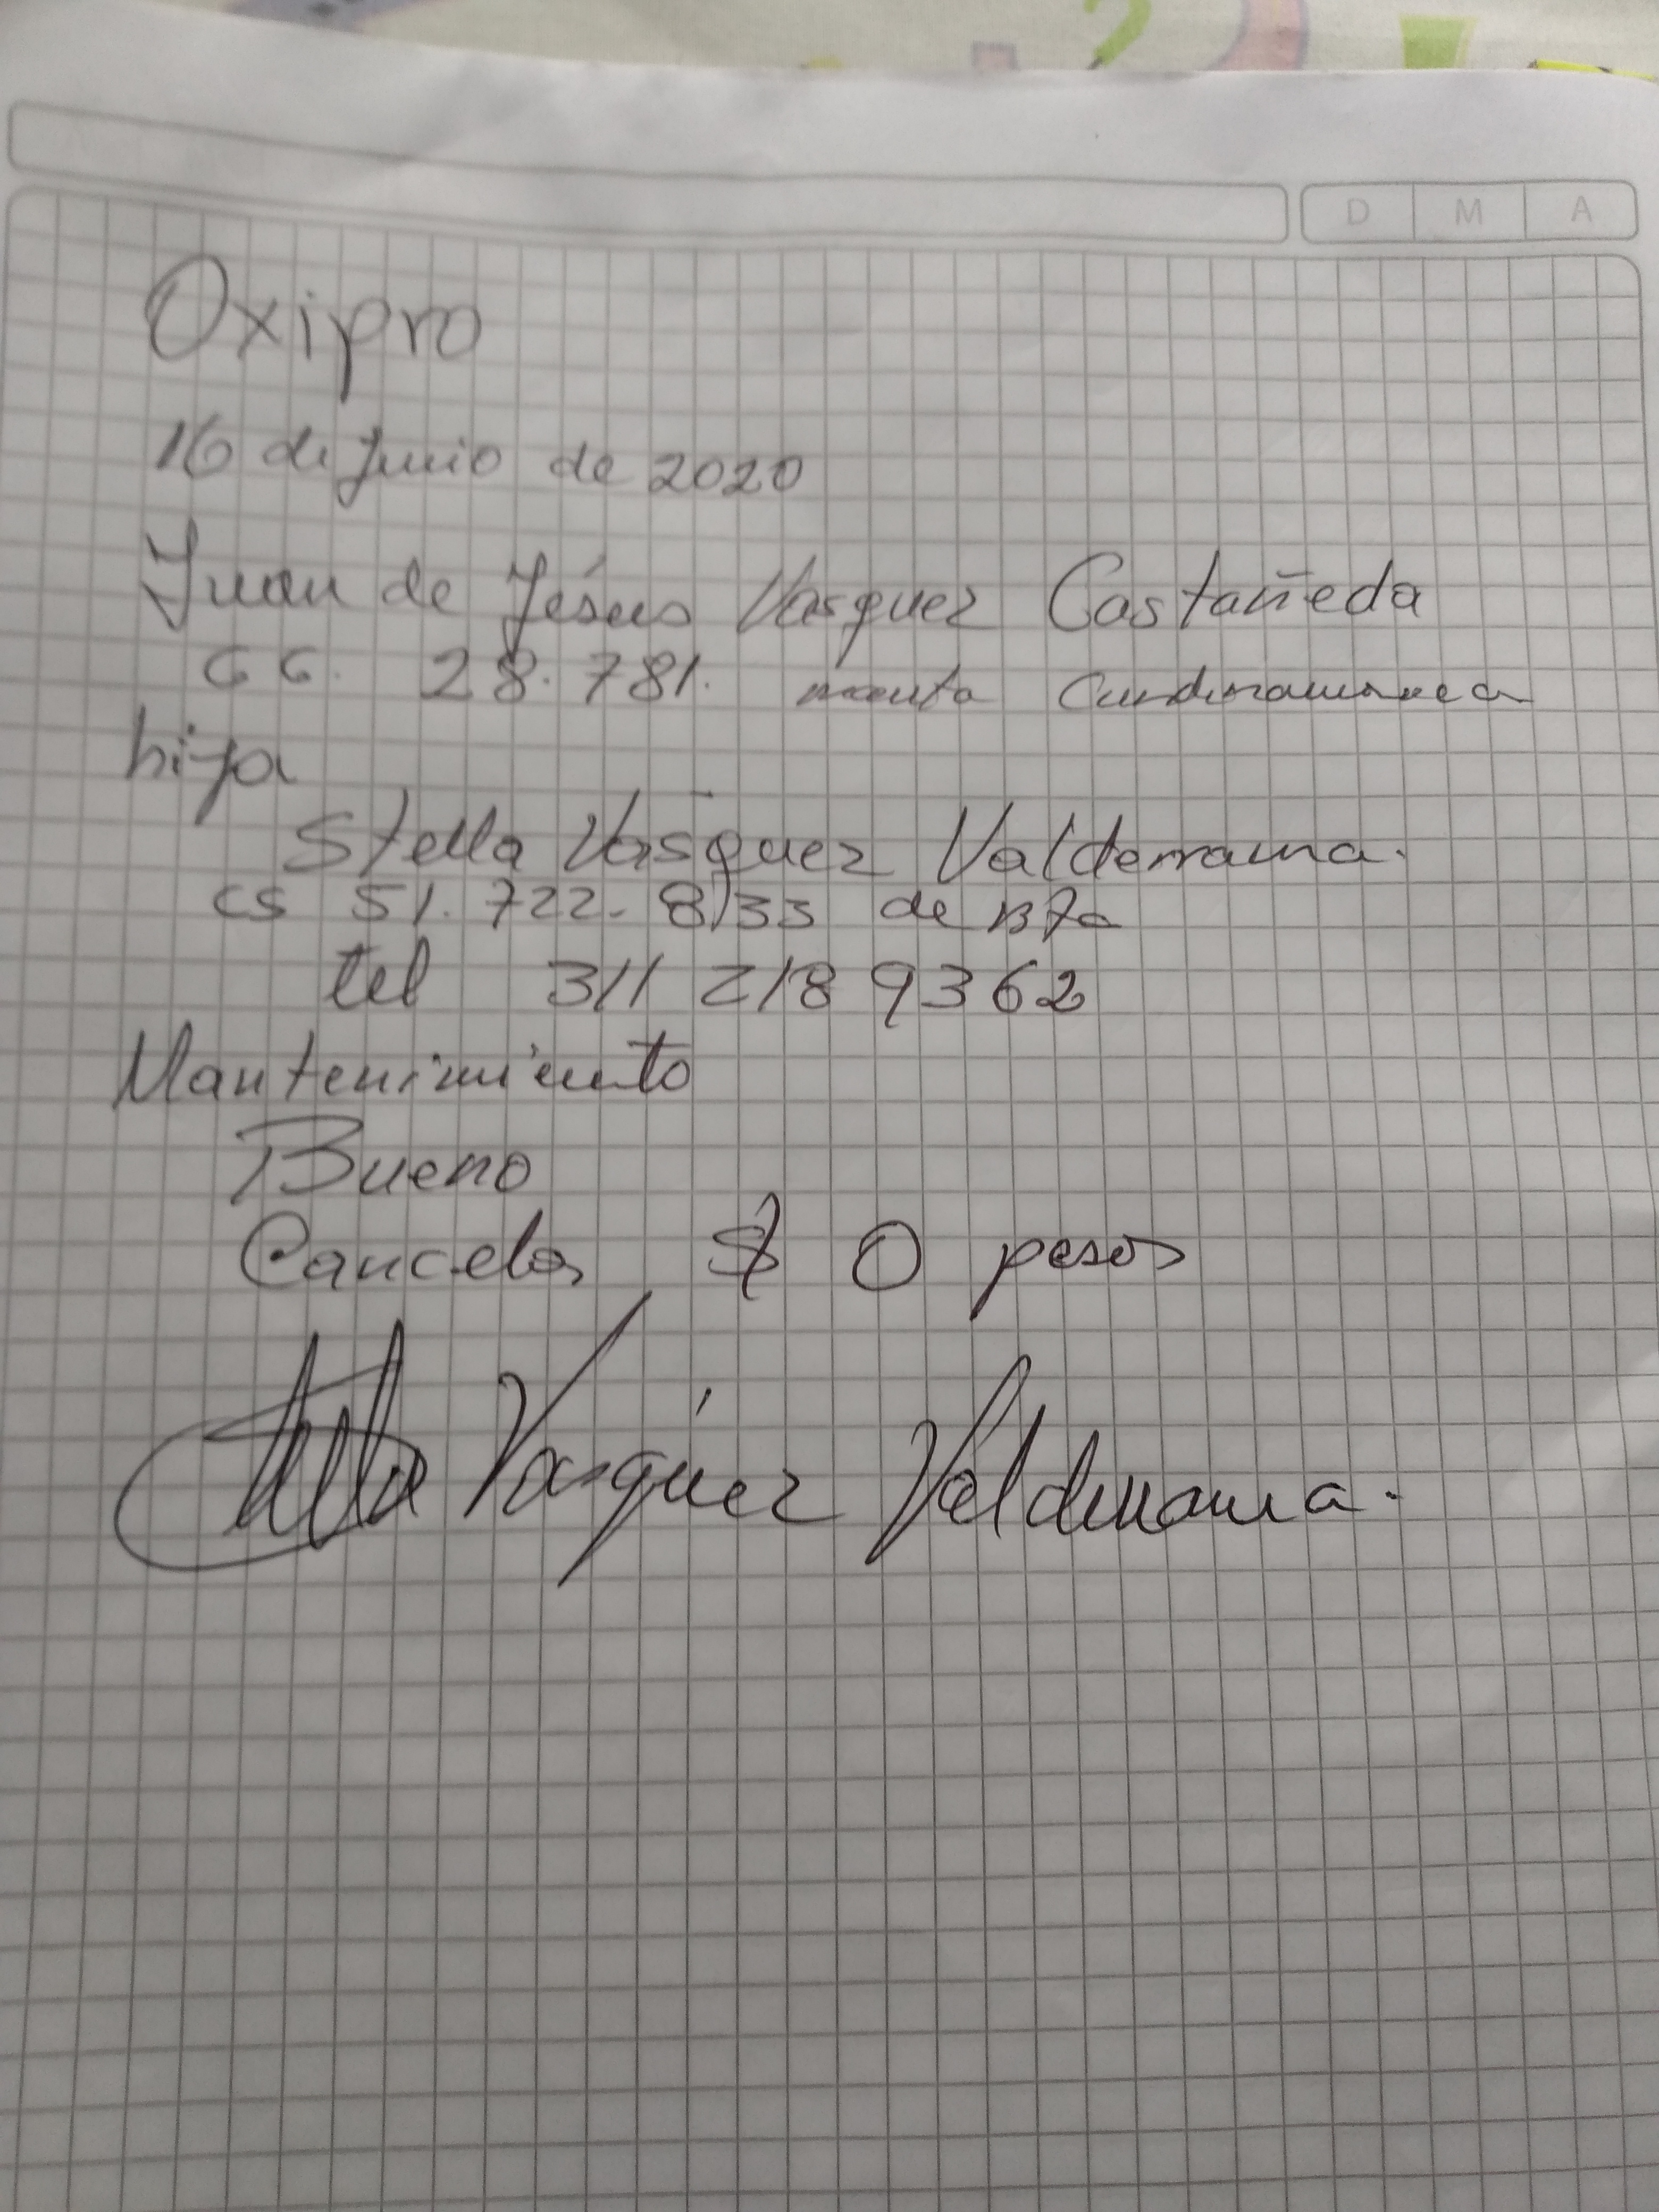 D M A
Oxipro
16 de Junio de 2020
Juan de Jésus Vasquez Castañeda
CC. 28.781. Cundinamarca
hija
Stella Vasquez Valderrama.
cs 51.722.833 de Bta
tel 311 218 9362
Mantenimiento
Bueno
Cancelo $ 0 pesos
Stella Vasquez Valderrama.